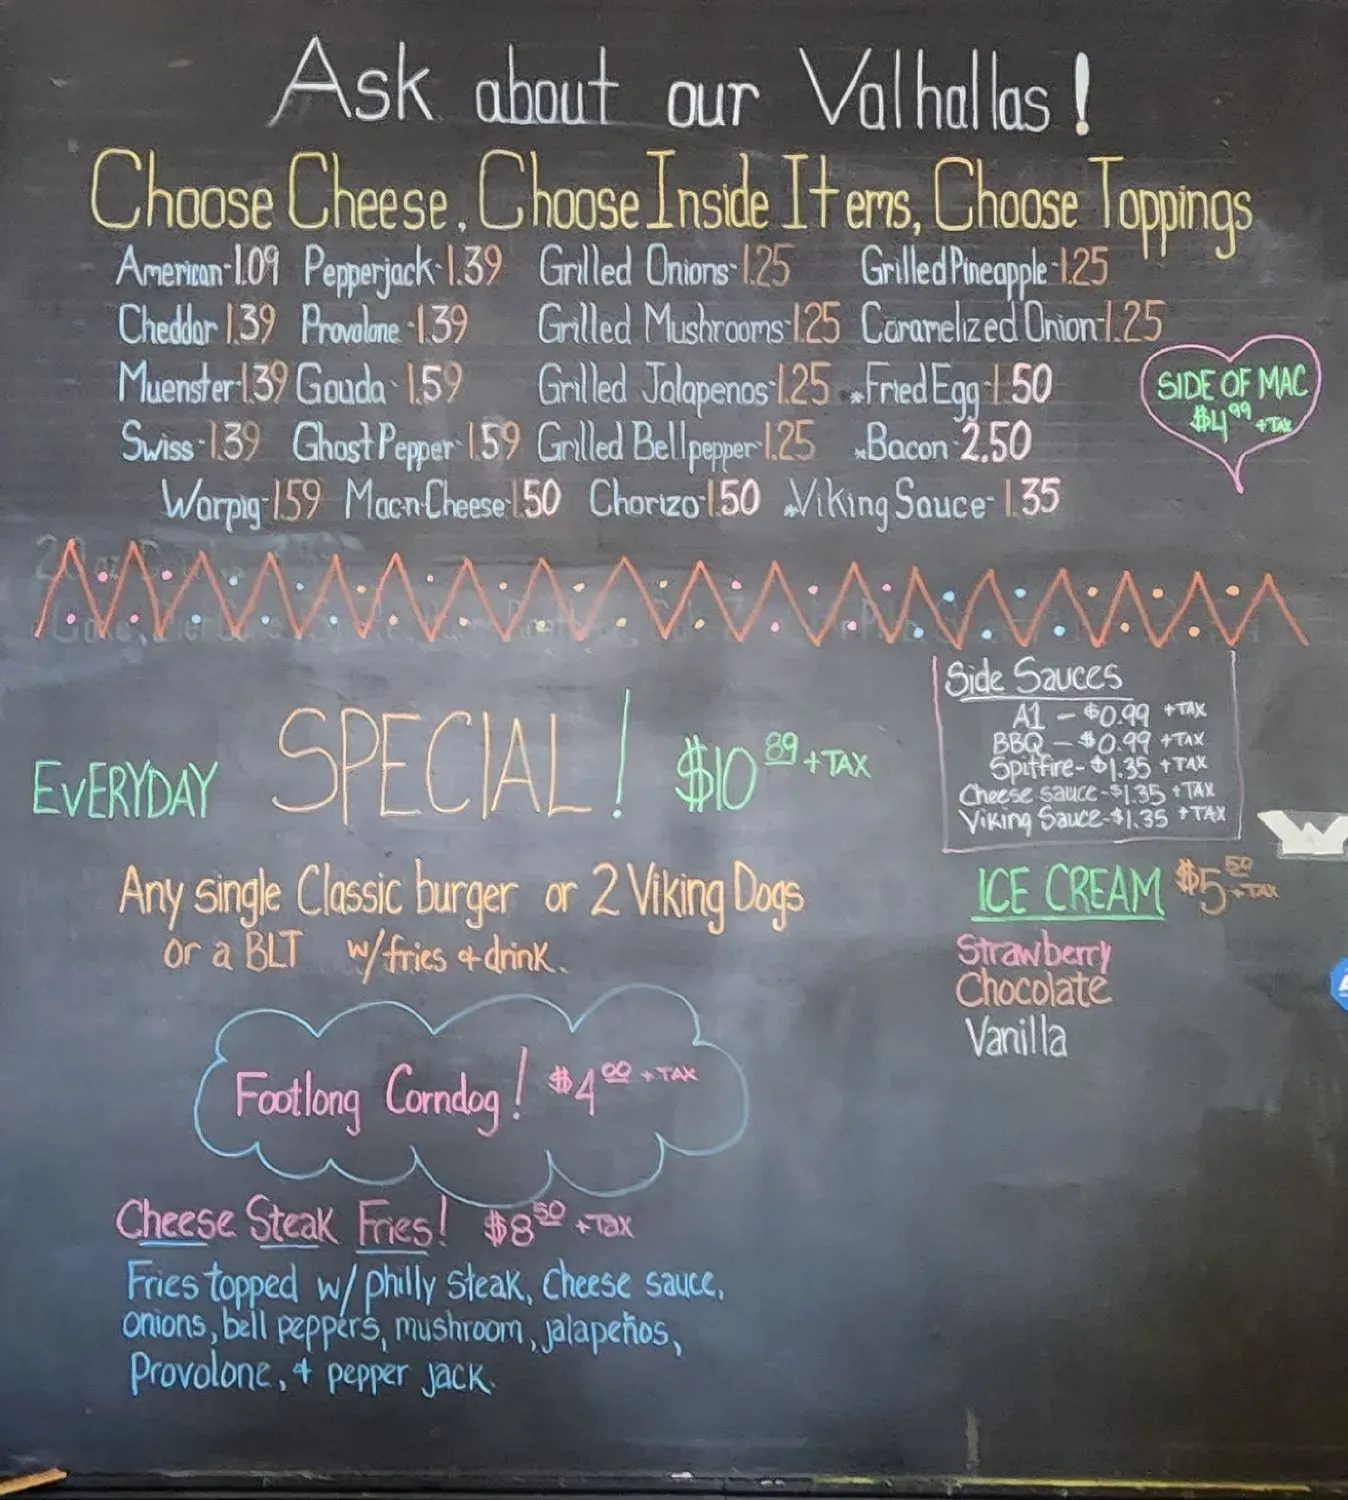 Ask about our Valhallas!
Choose Cheese, Choose Inside Items, Choose Toppings
American-1.09 Pepperjack-1.39 Grilled Onions-1.25 Grilled Pineapple-1.25
Cheddar 1.39 Provolone-1.39 Grilled Mushrooms-1.25 Caramelized Onion-1.25
Muenster-1.39 Gouda-1.59 Grilled Jalapenos-1.25 *Fried Egg-1.50
Swiss-1.39 Ghost Pepper-1.59 Grilled Bellpepper-1.25 *Bacon-2.50
Warpig-1.59 Mac-n-Cheese-1.50 Chorizo-1.50 *Viking Sauce-1.35
SIDE OF MAC
$4.99 +TAX
EVERYDAY SPECIAL! $10.89 +TAX
Any single Classic burger or 2 Viking Dogs
or a BLT w/fries & drink.
Side Sauces
A1 - $0.99 +TAX
BBQ - $0.99 +TAX
Spitfire-$1.35 +TAX
Cheese sauce-$1.35 +TAX
Viking Sauce-$1.35 +TAX
W
ICE CREAM $5.50 +TAX
Strawberry
Chocolate
Vanilla
Footlong Corndog! $4.00 +TAX
Cheese Steak Fries! $8.50 +Tax
Fries topped w/ philly steak, cheese sauce,
onions, bell peppers, mushroom, jalapeños,
Provolone, & pepper jack.